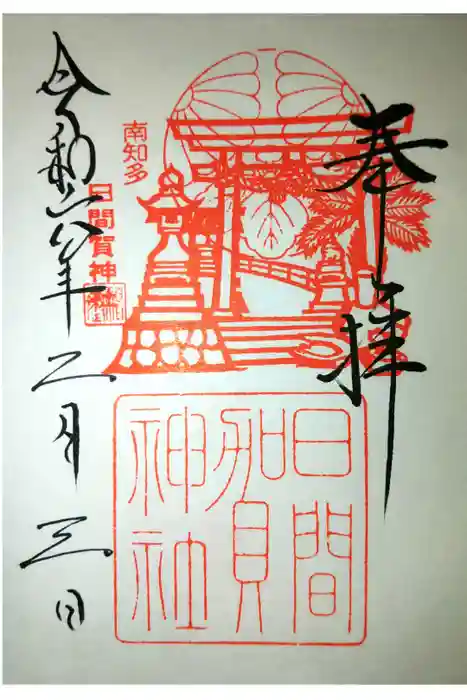 奉拝
日間
加貝
神社
南知多
日間賀神社
令和六年二月三日